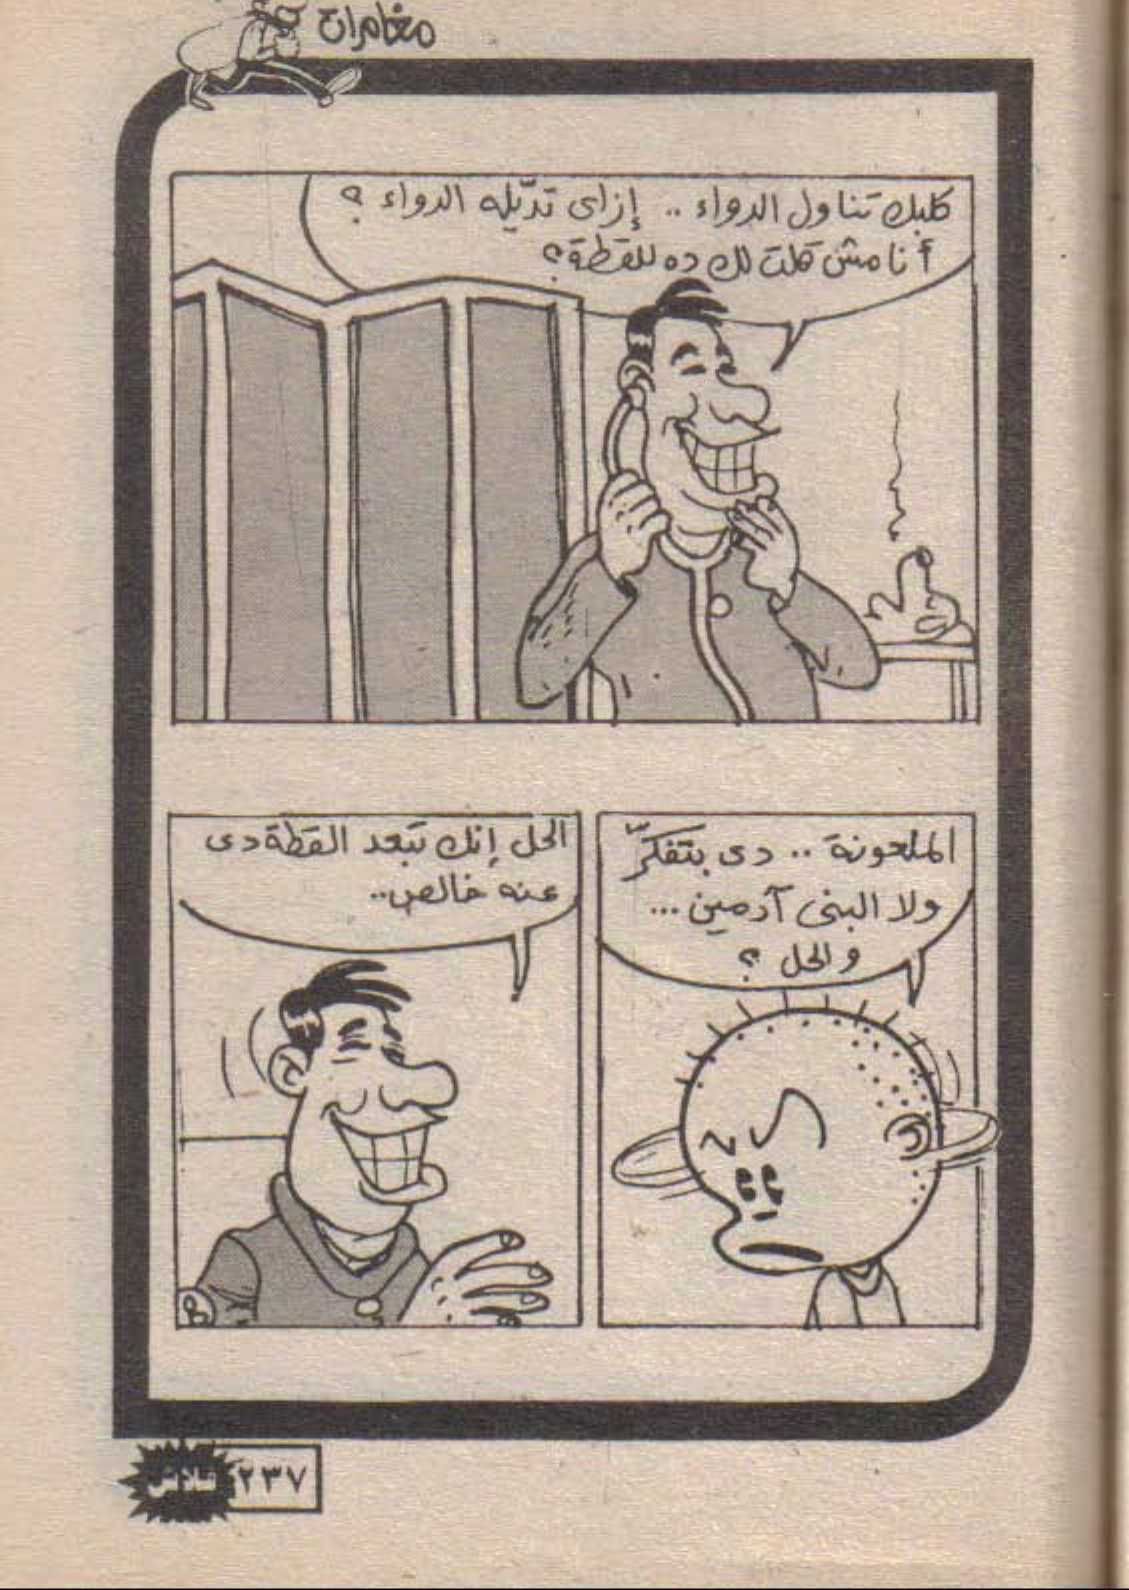 مغامرات
كلبك تناول الدواء .. إزاى تدّيله الدواء ؟
أنا مش قلت لك ده للقطة ؟
الملعونة .. دى بتفكّر
ولا البنى آدمين ...
والحل ؟
الحل إنك تبعد القطة دى
عنه خالص..
٢٣٧
فلاش